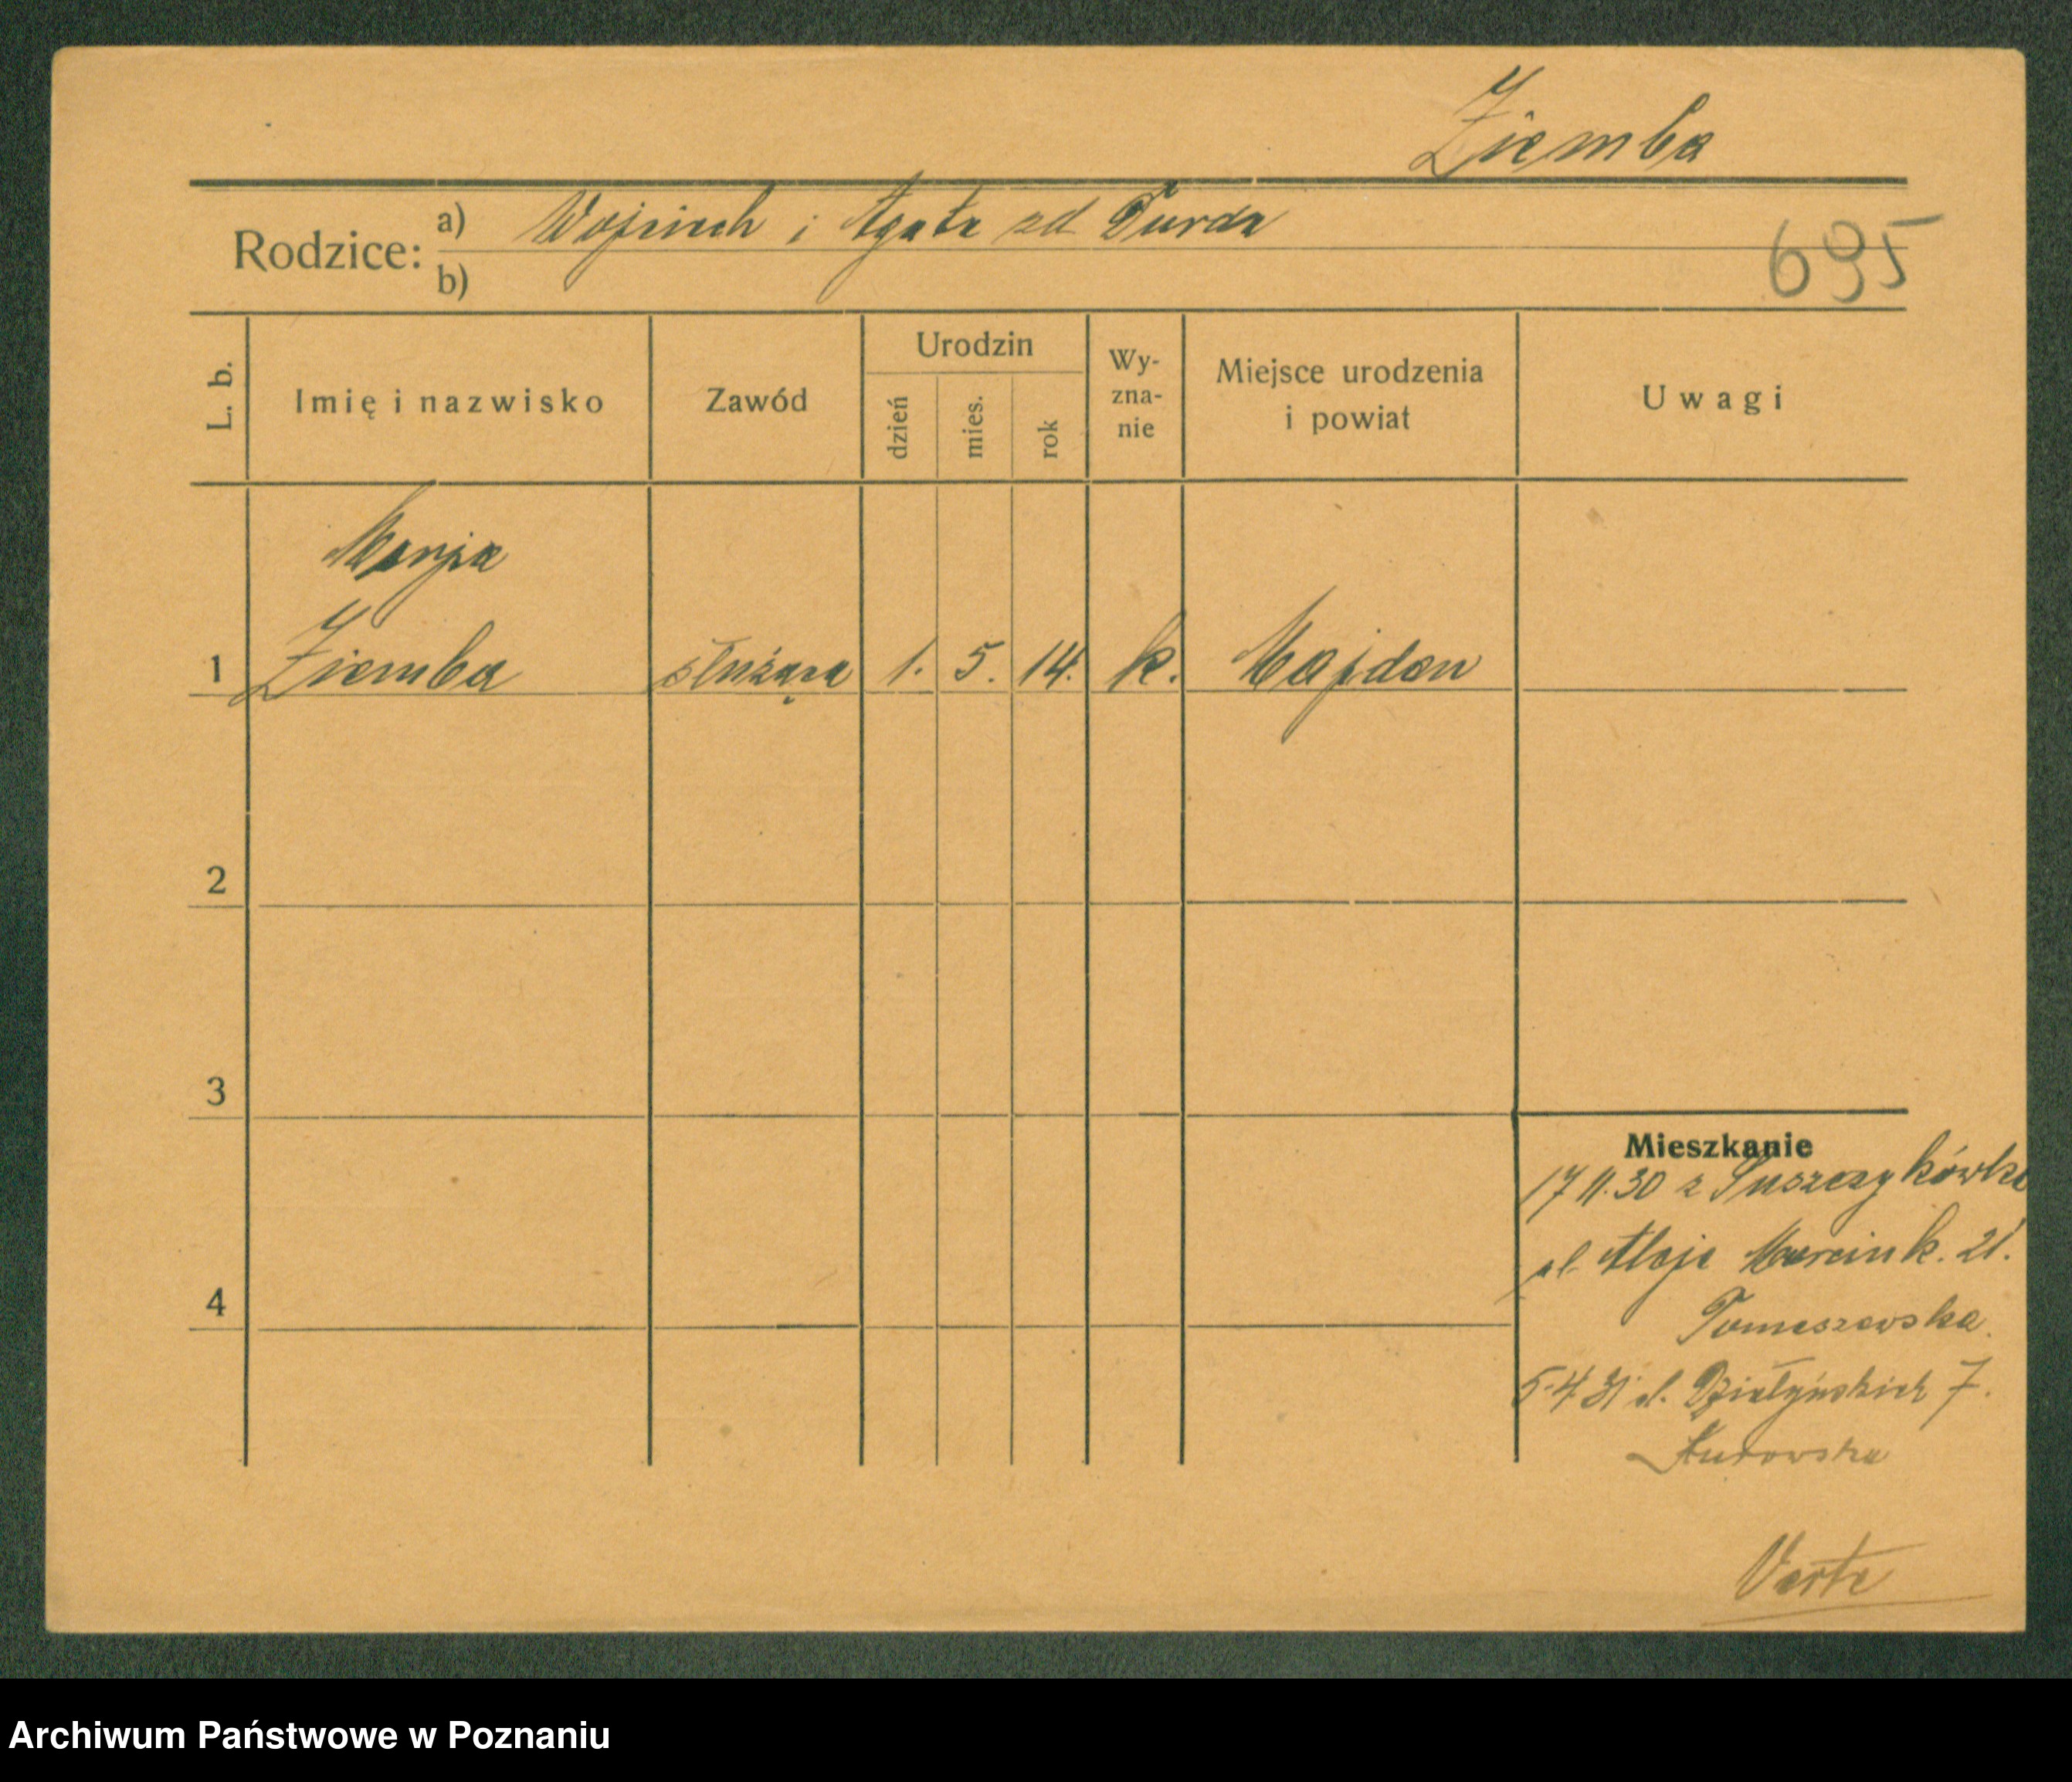 Ziemba
Rodzice: a) Wojciech i Agata zd Durda
b)
695
L. b. Imię i nazwisko Zawód Urodzin dzień mies. rok Wy-zna-nie Miejsce urodzenia i powiat Uwagi
Marja
1 Ziemba służąca 1. 5. 14. k. Majdan
2
3
4
Mieszkanie
17 11. 30 z
ul. Aleje Marcink. 21.
Tomaszewska
5.4 31 ul. Działyńskich 7.
Verte
Archiwum Państwowe w Poznaniu